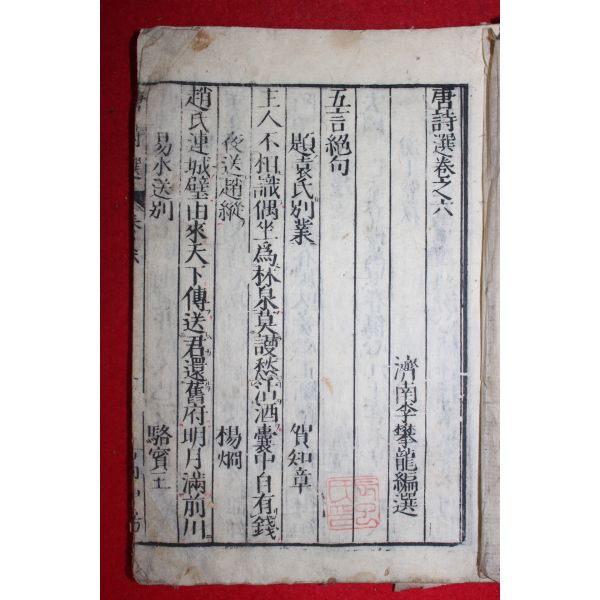 唐詩選卷之六
濟南李攀龍編選
五言絕句
題袁氏別業
賀知章
主人不相識偶坐爲林泉莫謾愁沽酒囊中自有錢
夜送趙縱
楊炯
趙氏連城璧由來天下傳送君還舊府明月滿前川
易水送別
駱賓王